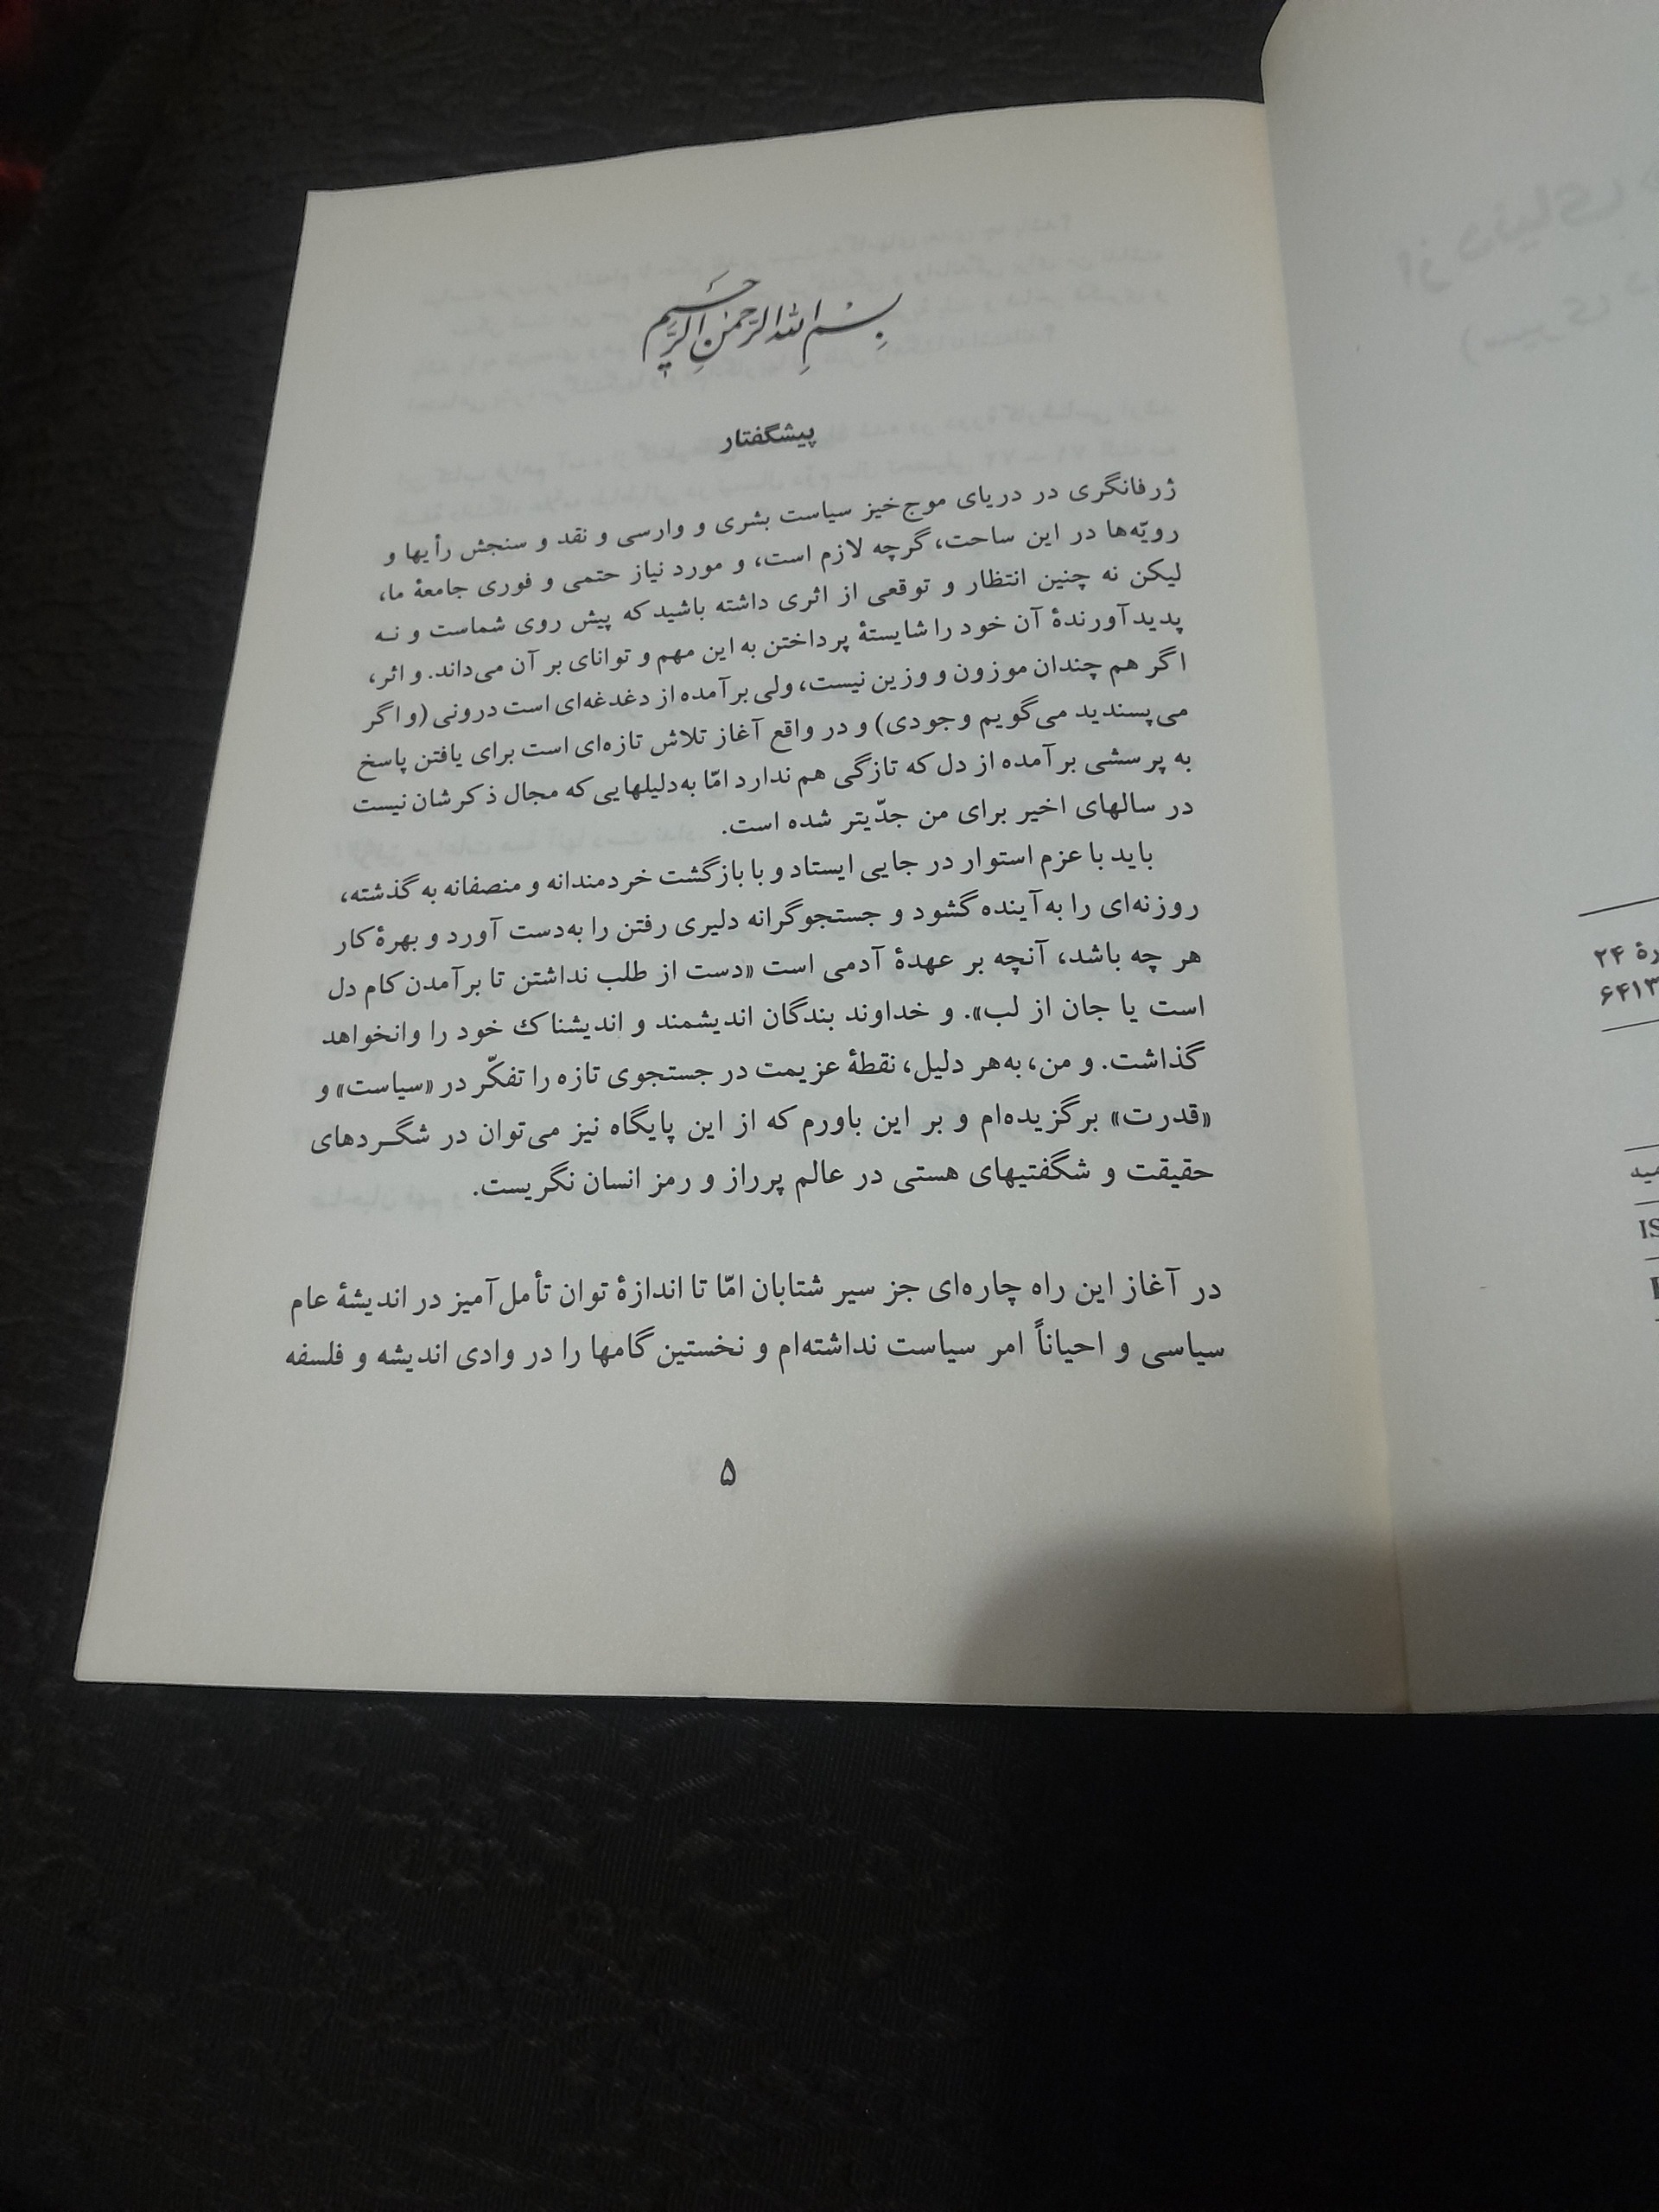 بسم الله الرحمن الرحیم
پیشگفتار
ژرفانگری در دریای موج‌خیز سیاست بشری و وارسی و نقد و سنجش رأیها و
رویّه‌ها در این ساحت، گرچه لازم است، و مورد نیاز حتمی و فوری جامعهٔ ما،
لیکن نه چنین انتظار و توقعی از اثری داشته باشید که پیش روی شماست و نه
پدیدآورندهٔ آن خود را شایستهٔ پرداختن به این مهم و توانای بر آن می‌داند. و اثر،
اگر هم چندان موزون و وزین نیست، ولی برآمده از دغدغه‌ای است درونی (و اگر
می‌پسندید می‌گویم وجودی) و در واقع آغاز تلاش تازه‌ای است برای یافتن پاسخ
به پرسشی برآمده از دل که تازگی هم ندارد امّا به‌دلیلهایی که مجال ذکرشان نیست
در سالهای اخیر برای من جدّیتر شده است.
باید با عزم استوار در جایی ایستاد و با بازگشت خردمندانه و منصفانه به گذشته،
روزنه‌ای را به آینده گشود و جستجوگرانه دلیری رفتن را به‌دست آورد و بهرهٔ کار
هر چه باشد، آنچه بر عهدهٔ آدمی است «دست از طلب نداشتن تا برآمدن کام دل
است یا جان از لب». و خداوند بندگان اندیشمند و اندیشناک خود را وانخواهد
گذاشت. و من، به‌هر دلیل، نقطهٔ عزیمت در جستجوی تازه را تفکّر در «سیاست» و
«قدرت» برگزیده‌ام و بر این باورم که از این پایگاه نیز می‌توان در شگردهای
حقیقت و شگفتیهای هستی در عالم پرراز و رمز انسان نگریست.
در آغاز این راه چاره‌ای جز سیر شتابان امّا تا اندازهٔ توان تأمل‌آمیز در اندیشهٔ عام
سیاسی و احیاناً امر سیاست نداشته‌ام و نخستین گامها را در وادی اندیشه و فلسفه
۵
۲۴